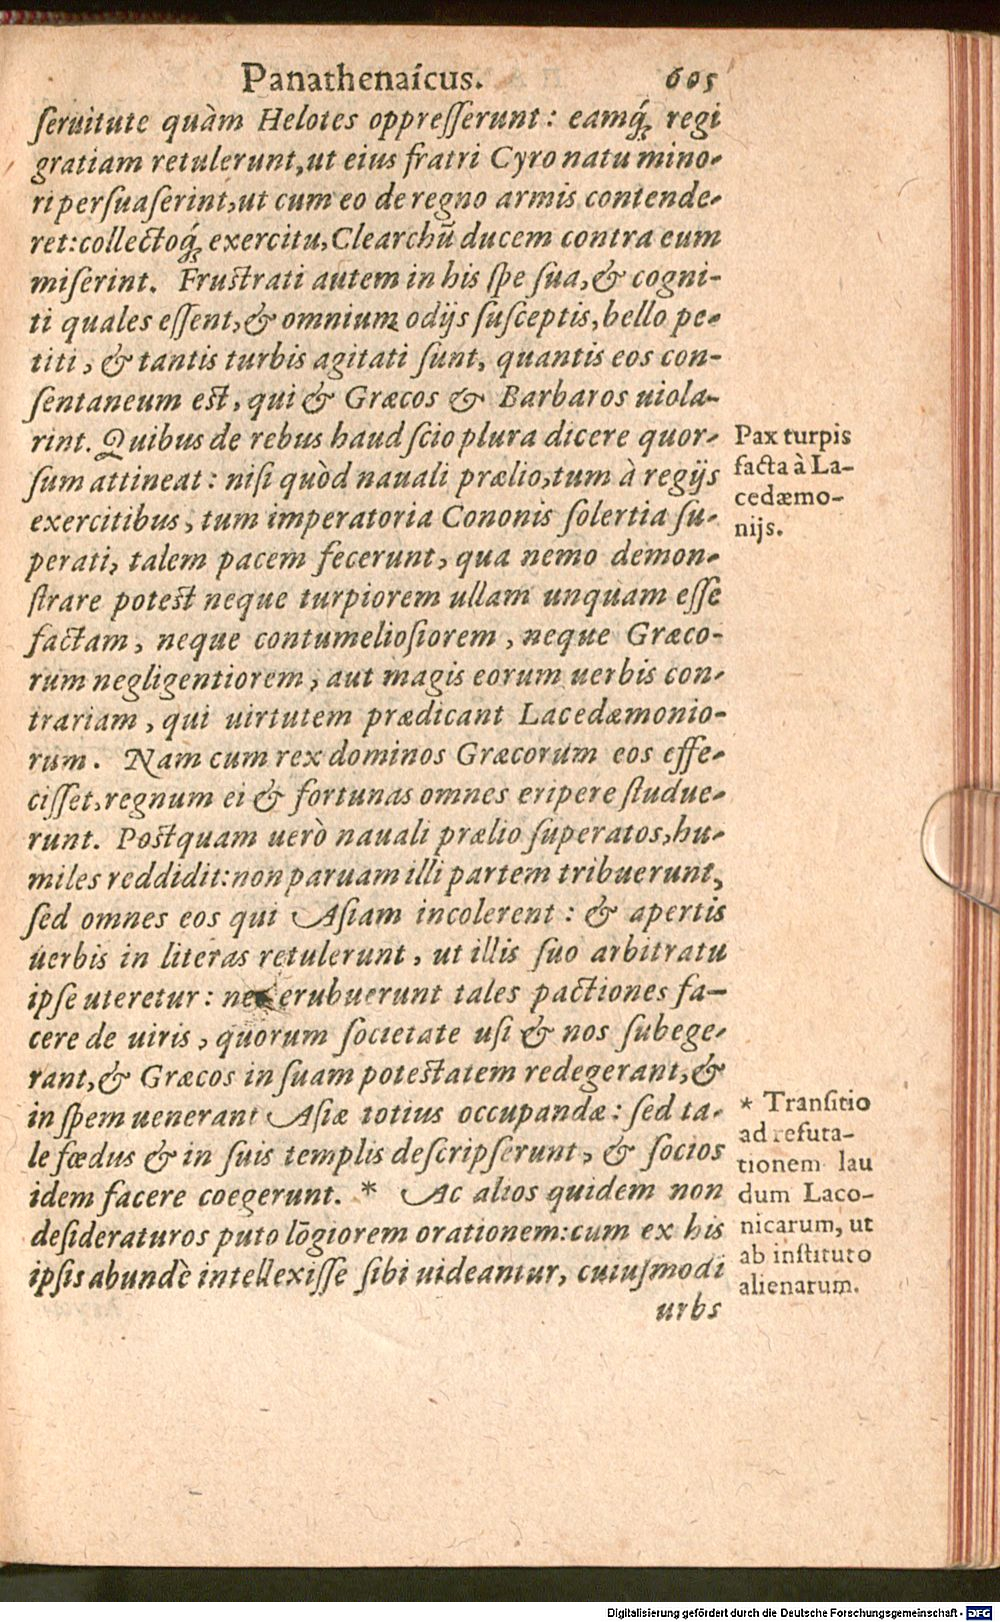 Panathenaicus. 605
ſeruitute quàm Helotes oppreſſerunt: eamq́; regi
gratiam retulerunt, ut eius fratri Cyro natu mino-
ri perſuaſerint, ut cum eo de regno armis contende-
ret: collectoq́; exercitu, Clearchū ducem contra eum
miſerint. Fruſtrati autem in his ſpe ſua, & cogni-
ti quales eſſent, & omnium odijs ſuſceptis, bello pe-
titi, & tantis turbis agitati ſunt, quantis eos con-
ſentaneum eſt, qui & Græcos & Barbaros uiola-
rint. Quibus de rebus haud ſcio plura dicere quor-
ſum attineat: niſi quòd nauali prælio, tum à regijs
exercitibus, tum imperatoria Cononis ſolertia ſu-
perati, talem pacem fecerunt, qua nemo demon-
ſtrare poteſt neque turpiorem ullam unquam eſſe
factam, neque contumelioſiorem, neque Græco-
rum negligentiorem, aut magis eorum uerbis con-
trariam, qui uirtutem prædicant Lacedæmonio-
rum. Nam cum rex dominos Græcorum eos effe-
ciſſet, regnum ei & fortunas omnes eripere ſtudue-
runt. Poſtquam uerò nauali prælio ſuperatos, hu-
miles reddidit: non paruam illi partem tribuerunt,
ſed omnes eos qui Aſiam incolerent: & apertis
uerbis in literas retulerunt, ut illis ſuo arbitratu
ipſe uteretur: nec erubuerunt tales pactiones fa-
cere de uiris, quorum ſocietate uſi & nos ſubege-
rant, & Græcos in ſuam poteſtatem redegerant, &
in ſpem uenerant Aſiæ totius occupandæ: ſed ta-
le fœdus & in ſuis templis deſcripſerunt, & ſocios
idem facere coegerunt. * Ac alios quidem non
deſideraturos puto lōgiorem orationem: cum ex his
ipſis abundè intellexiſſe ſibi uideantur, cuiuſmodi
urbs
Pax turpis
facta à La-
cedæmo-
nijs.
* Tranſitio
ad refuta-
tionem lau
dum Laco-
nicarum, ut
ab inſtituto
alienarum.
Digitalisierung gefördert durch die Deutsche Forschungsgemeinschaft - DFG